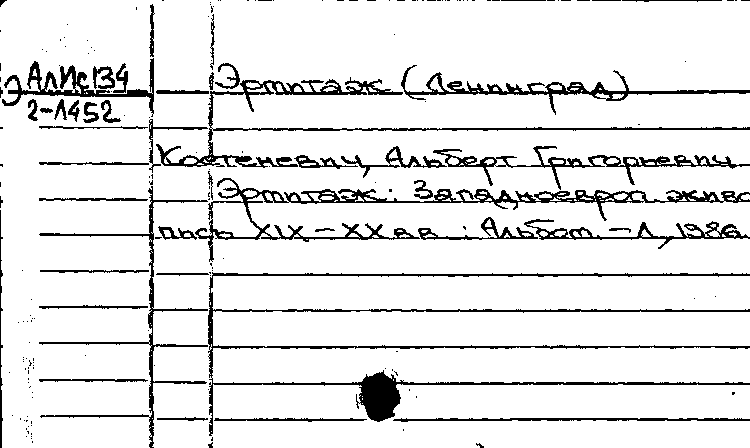 Э АлИс134
2-Л452
Эрмитаж (Ленинград)
Костеневич, Альберт Григорьевич
Эрмитаж: Западноевроп. живо
пись XIX-XX вв.: Альбом. - Л, 1986.